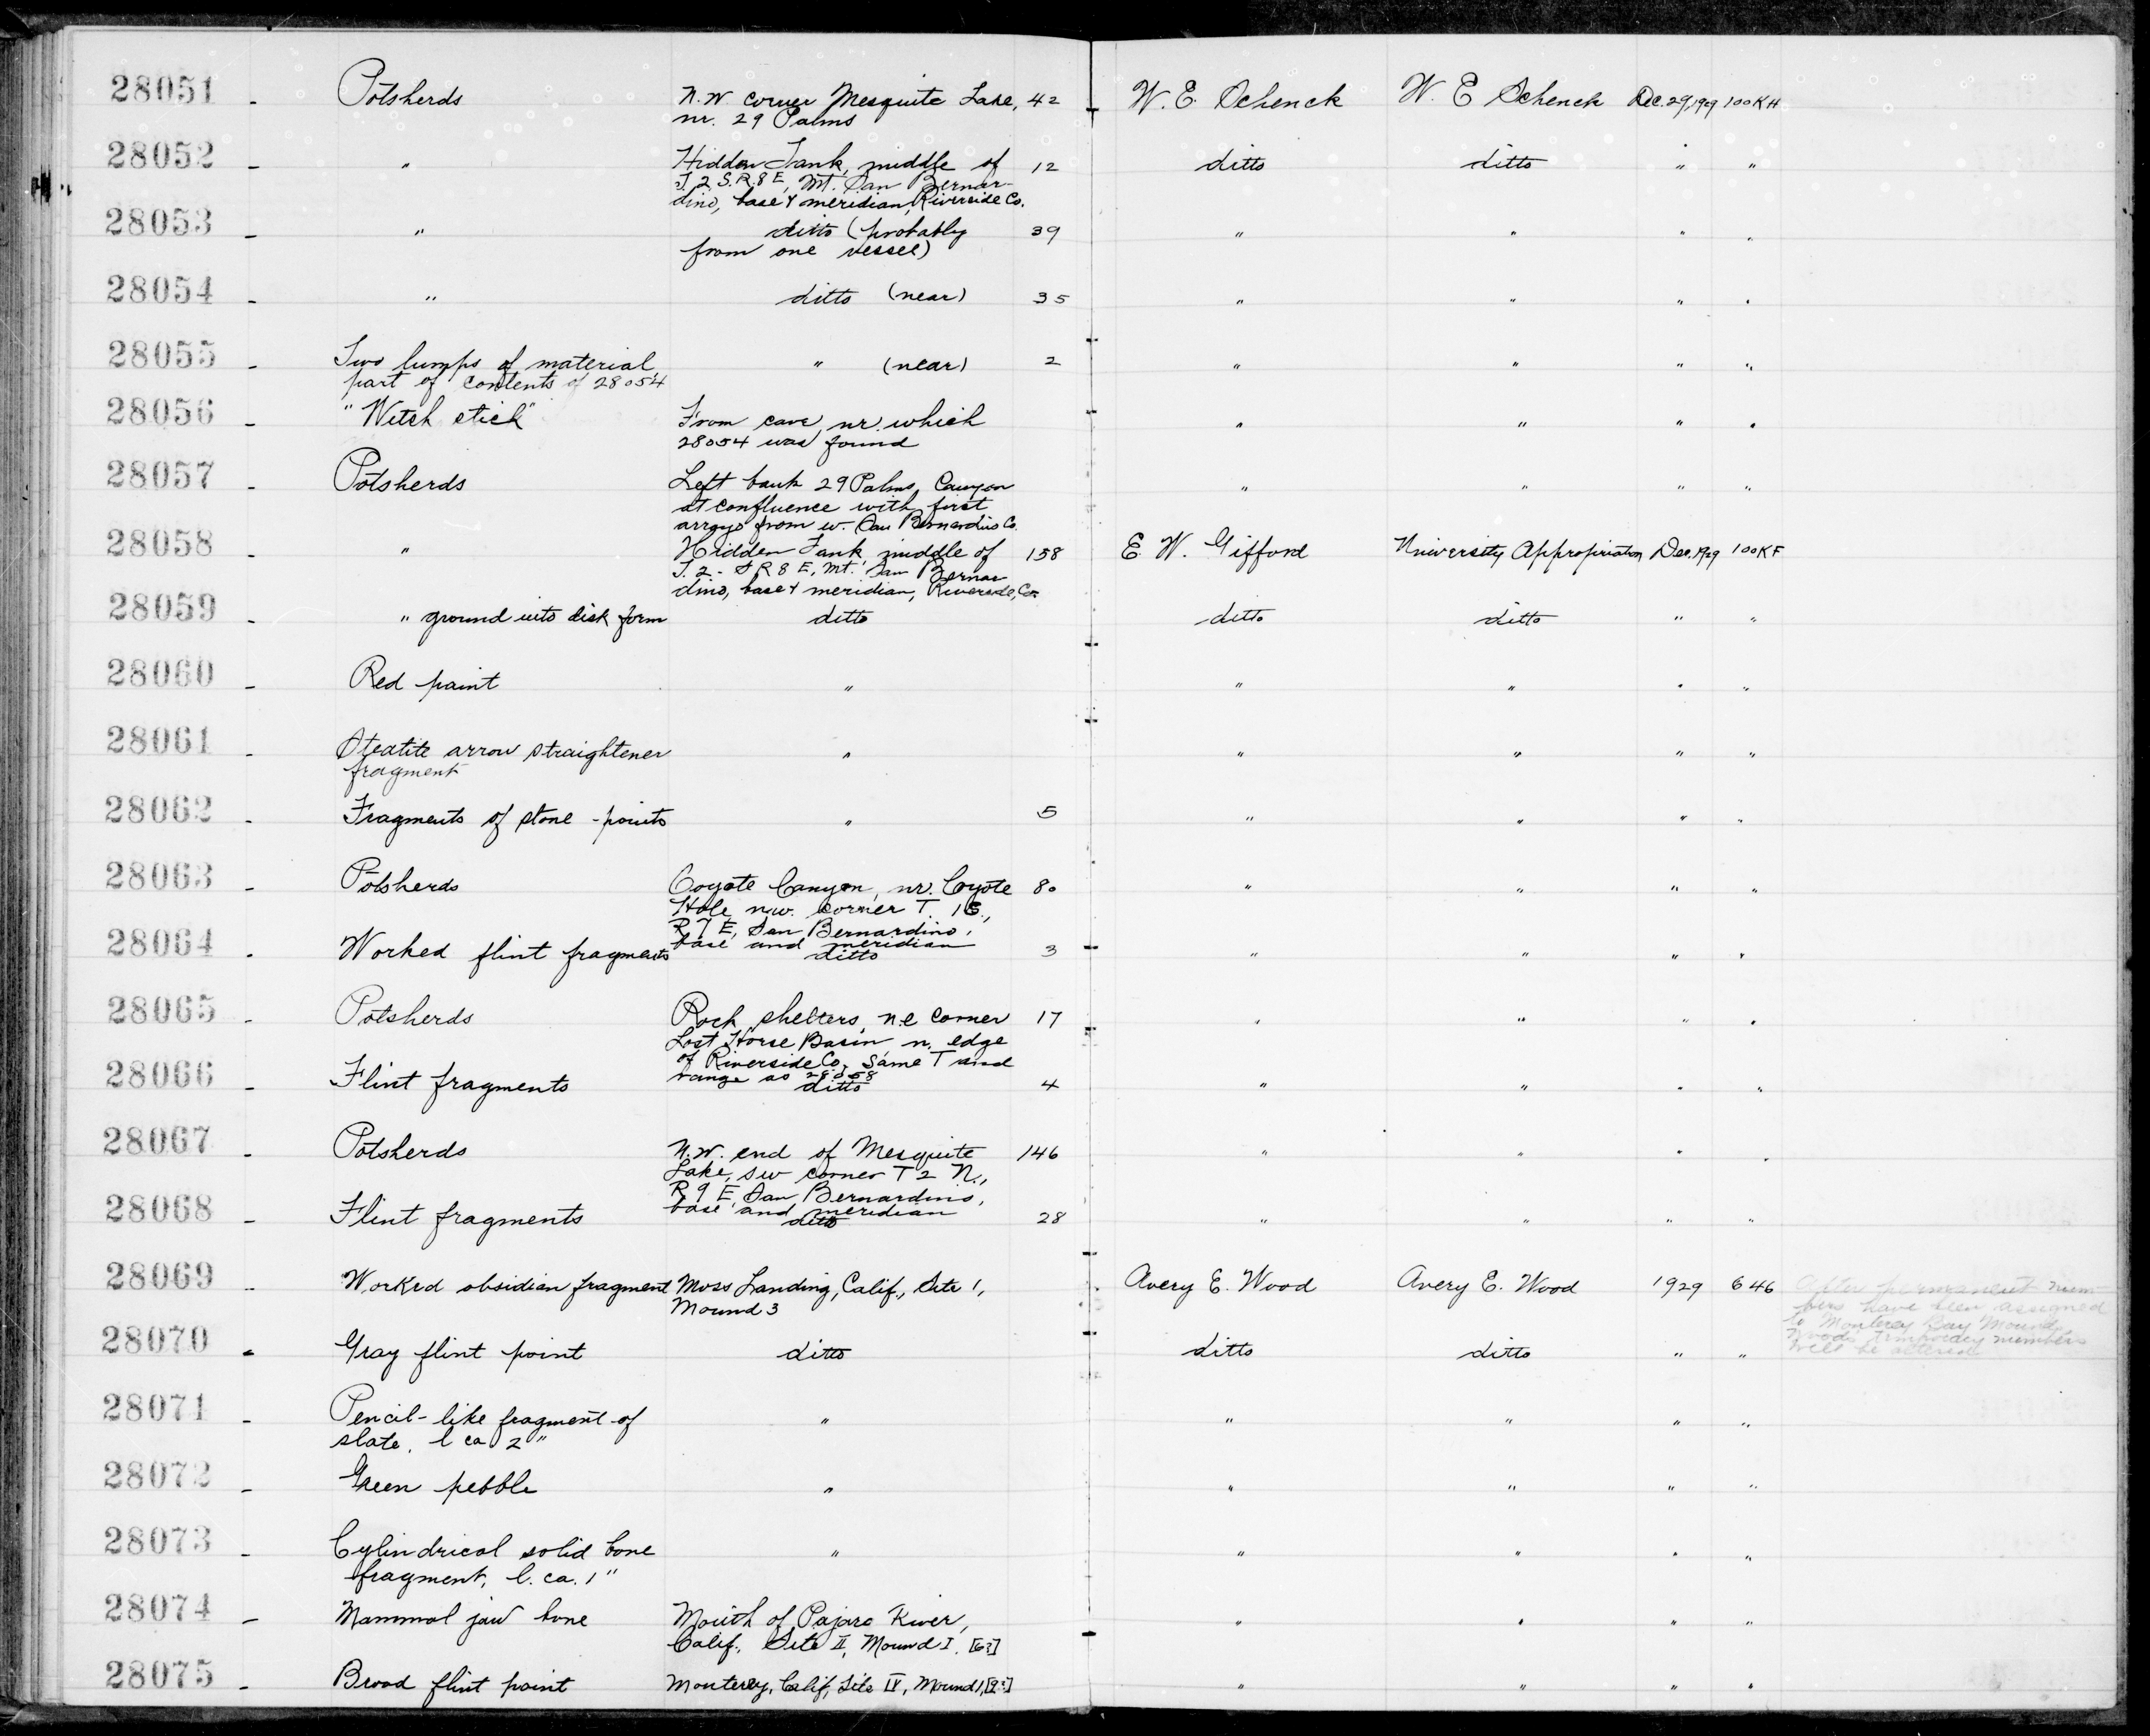 28051 - Potsherds N.W. corner Mesquite Lake, 42 W. E. Schenck W. E Schenck Dec. 29, 1929 100KH
nr. 29 Palms
28052 - " Hidden Tank, middle of 12 ditto ditto " "
T. 2 S. R. 8 E, Mt. San Bernar-
dino, base & meridian, Riverside Co.
28053 - " ditto (probably 39 " " " "
from one vessel)
28054 - " ditto (near) 35 " " " "
28055 - Two lumps of material " (near) 2 " " " "
part of contents of 28054
28056 - "Witch stick" From cave, nr. which " " " "
28054 was found
28057 - Potsherds Left bank 29 Palms, Canyon " " " "
at confluence with first
arroyo from w. San Bernardino Co.
28058 - " Hidden Tank, middle of 158 E. W. Gifford University Appropriation Dec. 1929 100KF
T. 2 - S R 8 E, Mt. San Bernar
dino, base & meridian, Riverside, Co.
28059 - " ground into disk form ditto ditto ditto " "
28060 - Red paint " " " " "
28061 - Steatite arrow straightener " " " " "
fragment
28062 - Fragments of stone-points " 5 " " " "
28063 - Potsherds Coyote Canyon, nr. Coyote 80 " " " "
Hole, nw. corner T.
R 7 E, San Bernardino,
base and meridian
28064 - Worked flint fragments ditto 3 " " " "
28065 - Potsherds Rock shelters, n.e corner 17 " " " "
Lost Horse Basin n. edge
of Riverside Co. Same T and
range as 28058
28066 - Flint fragments ditto 4 " " " "
28067 - Potsherds N.W. end of Mesquite 146 " " " "
Lake, sw corner T 2 N.,
R 9 E, San Bernardino,
base and meridian
28068 - Flint fragments ditto 28 " " " "
28069 - Worked obsidian fragment Moss Landing, Calif., Site 1, Avery E. Wood Avery E. Wood 1929 646 After permanent num-
Mound 3 bers have been assigned
to Monterey Bay Mounds
Woods temporary numbers
will be altered
28070 - Gray flint point ditto ditto ditto " "
28071 - Pencil-like fragment of " " " " "
slate, l ca 2"
28072 - Green pebble " " " " "
28073 - Cylindrical solid bone " " " " "
fragment, l. ca. 1"
28074 - Mammal jaw bone Mouth of Pajaro River, " " " "
Calif., Site II, Mound I. [6?]
28075 - Broad flint point Monterey, Calif, Site IV, Mound 1, [9?] " " " "